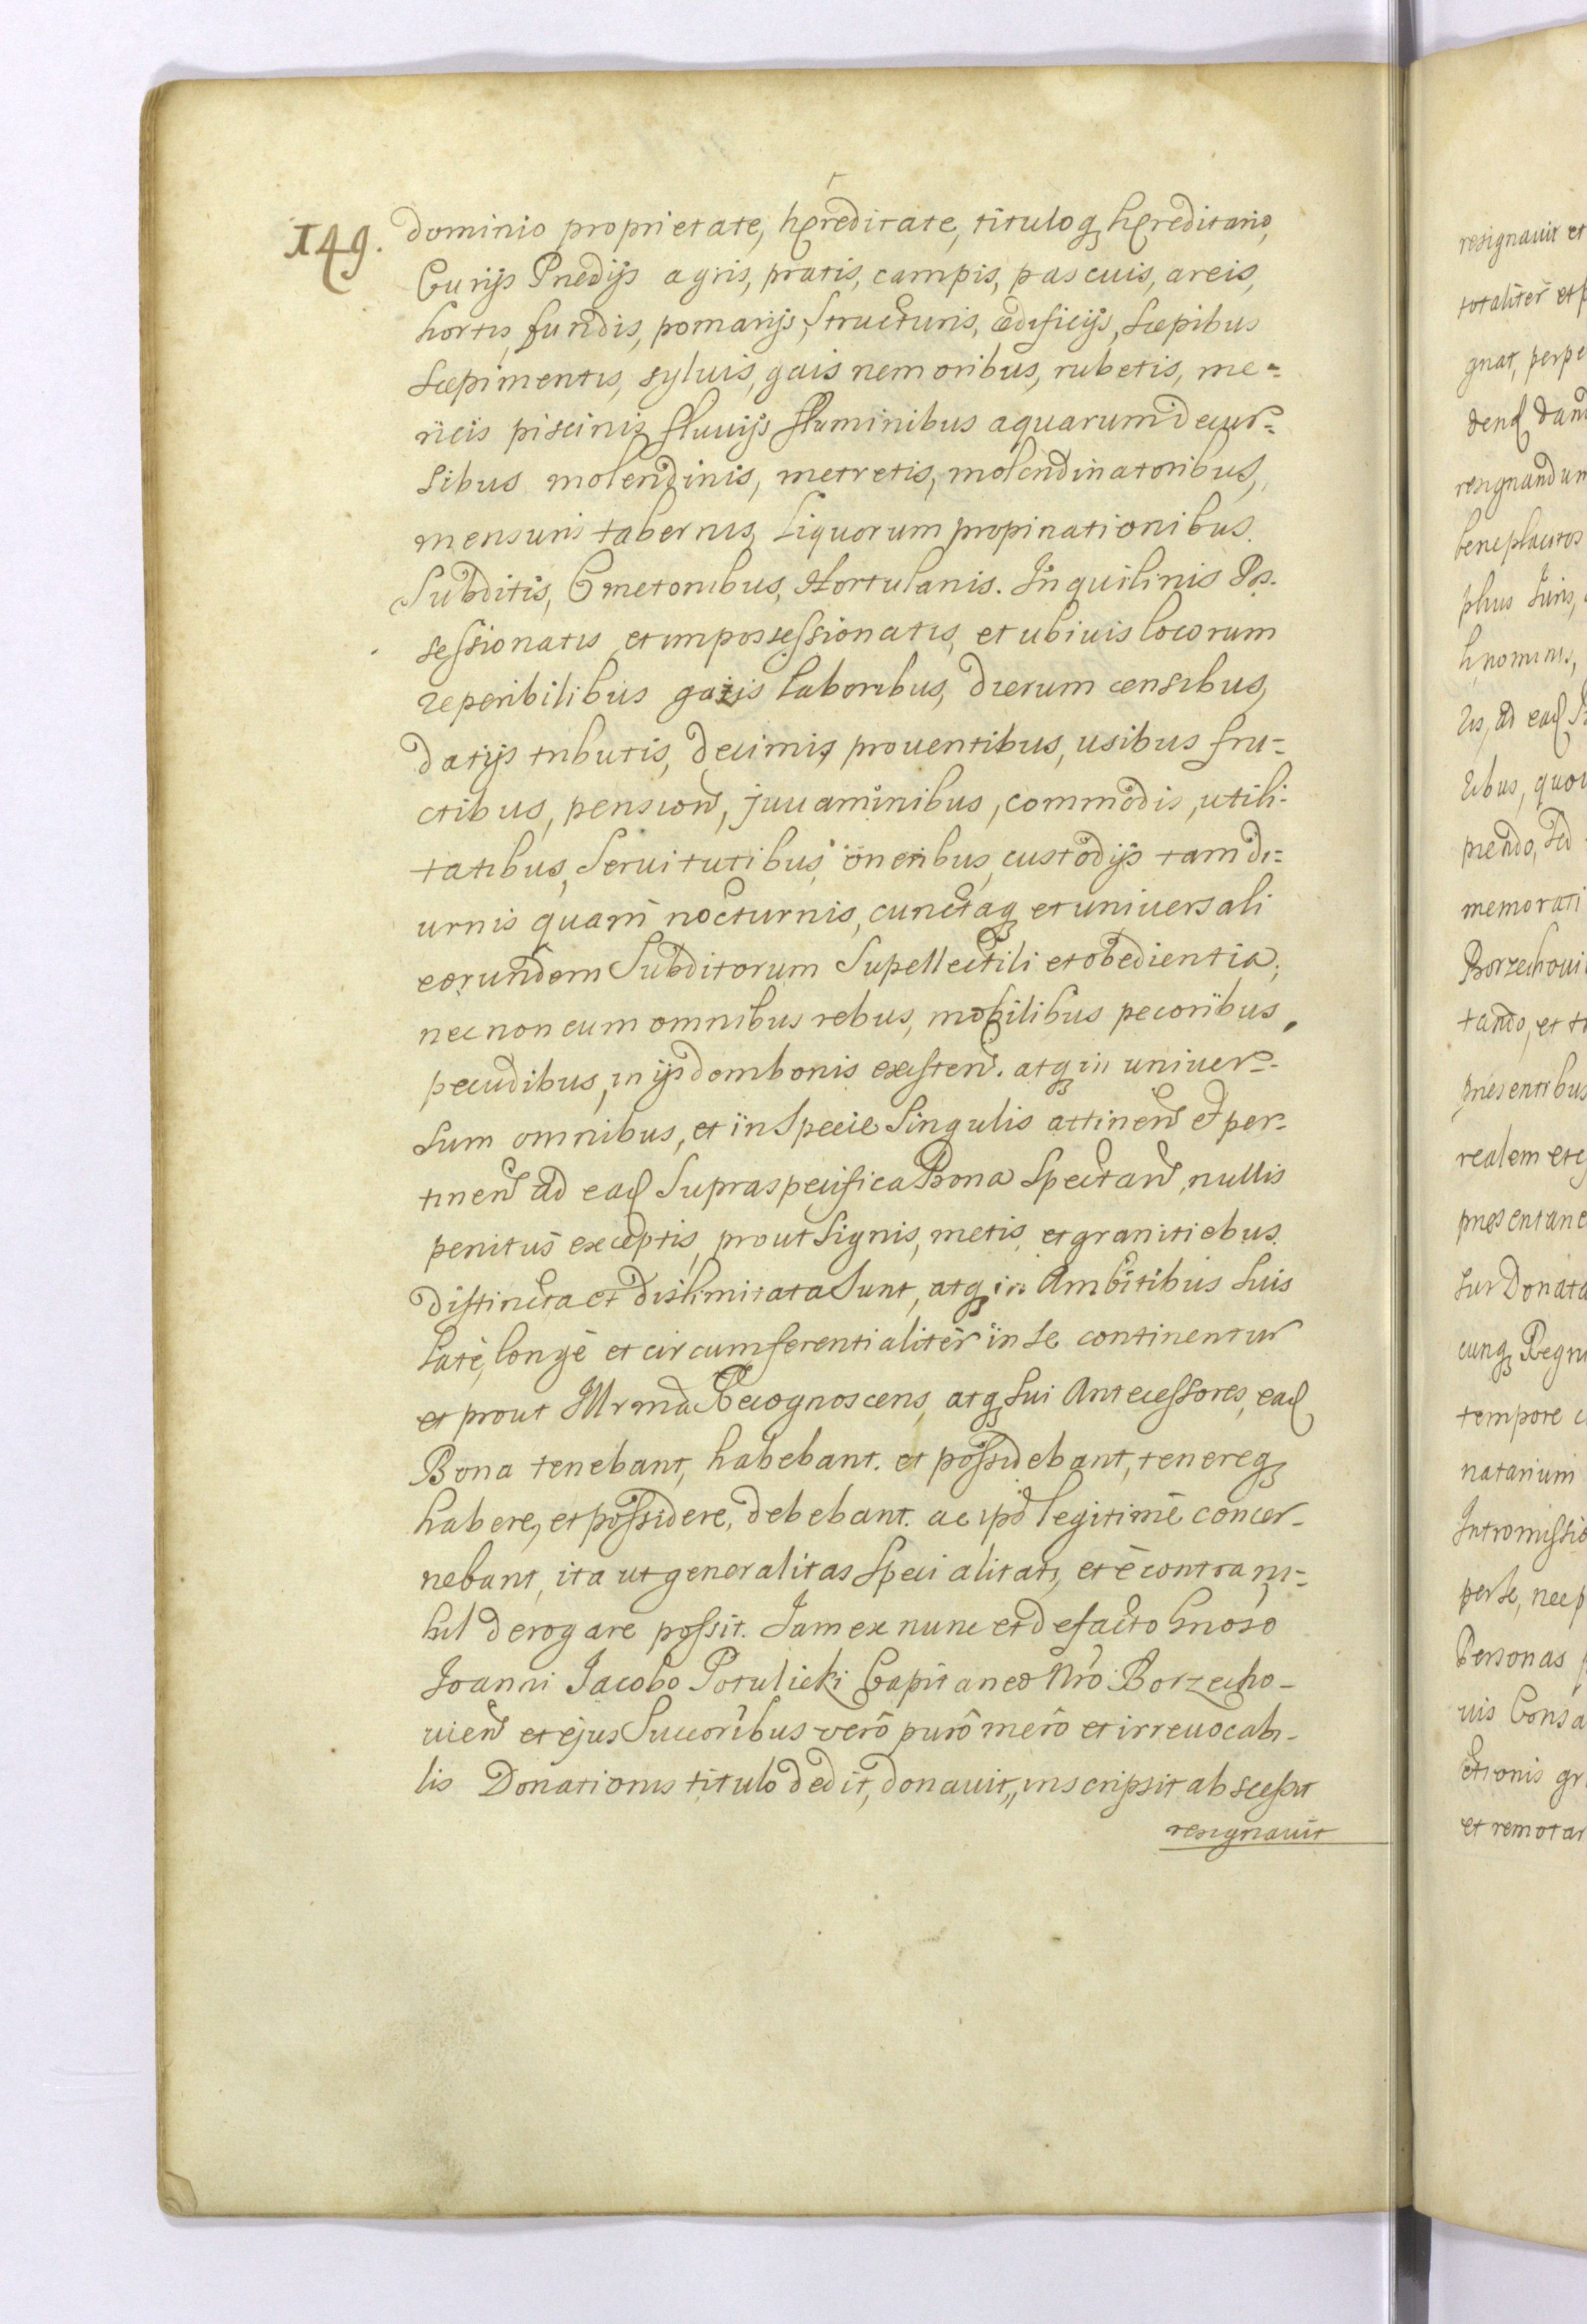 149.
dominio proprietate, hęreditate, tituloq; hęreditario,
Curijs Prædijs agris, pratis, campis, pascuis, areis,
hortis, fundis, pomarijs, Structuris, ædificijs, Sæpibus
Sæpimentis, syluis, gais nemoribus, rubetis, me=
ricis piscinis fluuijs fluminibus aquarum decur=
sibus molendinis, metretis, molendinatoribus,
mensuris tabernis, Liquorum propinationibus.
Subditis, Cmetonibus, Hortulanis. Inquilinis Pos.
sessionatis et impossessionatis, et ubiuis locorum
reperibilibus gazis laboribus, dierum censibus,
datijs tributis, decimis prouentibus, usibus fru=
ctibus, pension̄, juuaminibus, commodis, utili-
tatibus, Seruitutibus, oneribus, custodijs tam di=
urnis quam nocturnis, cunctaq; et uniuersali
eorundem Subditorum Supellectili et obedientia,
nec non cum omnibus rebus, mobilibus pecoribus,
pecudibus, in ijsdem bonis existen̄. atq; in uniuer=
sum omnibus, et in Specie Singulis attinen̄ et per-
tinen̄ ad ead Supraspecifica Bona Spectan̄, nullis
penitus exceptis, prout Signis, metis, et granitiebus
distincta et dislimitata Sunt, atq; in Ambitibus Suis
Latè, longè et circumferentialiter in se continentur
et prout Illr mda Recognoscens, atq; Sui Antecessores, ead
Bona tenebant, habebant. et possidebant, tenereq;
habere, et possidere, debebant. ac ipd legitimè concer-
nebant, ita ut generalitas Specialitati, et è contra ni=
hil derogare possit. Jam ex nunc et de facto Gnoso
Joanni Jacobo Potulicki Capitaneo Nro Borzecho-
uien̄ et ejus Succoribus verô purô merô et irreuocabi-
lis Donationis titulo dedit, donauit, inscripsit abscessit
resignauit